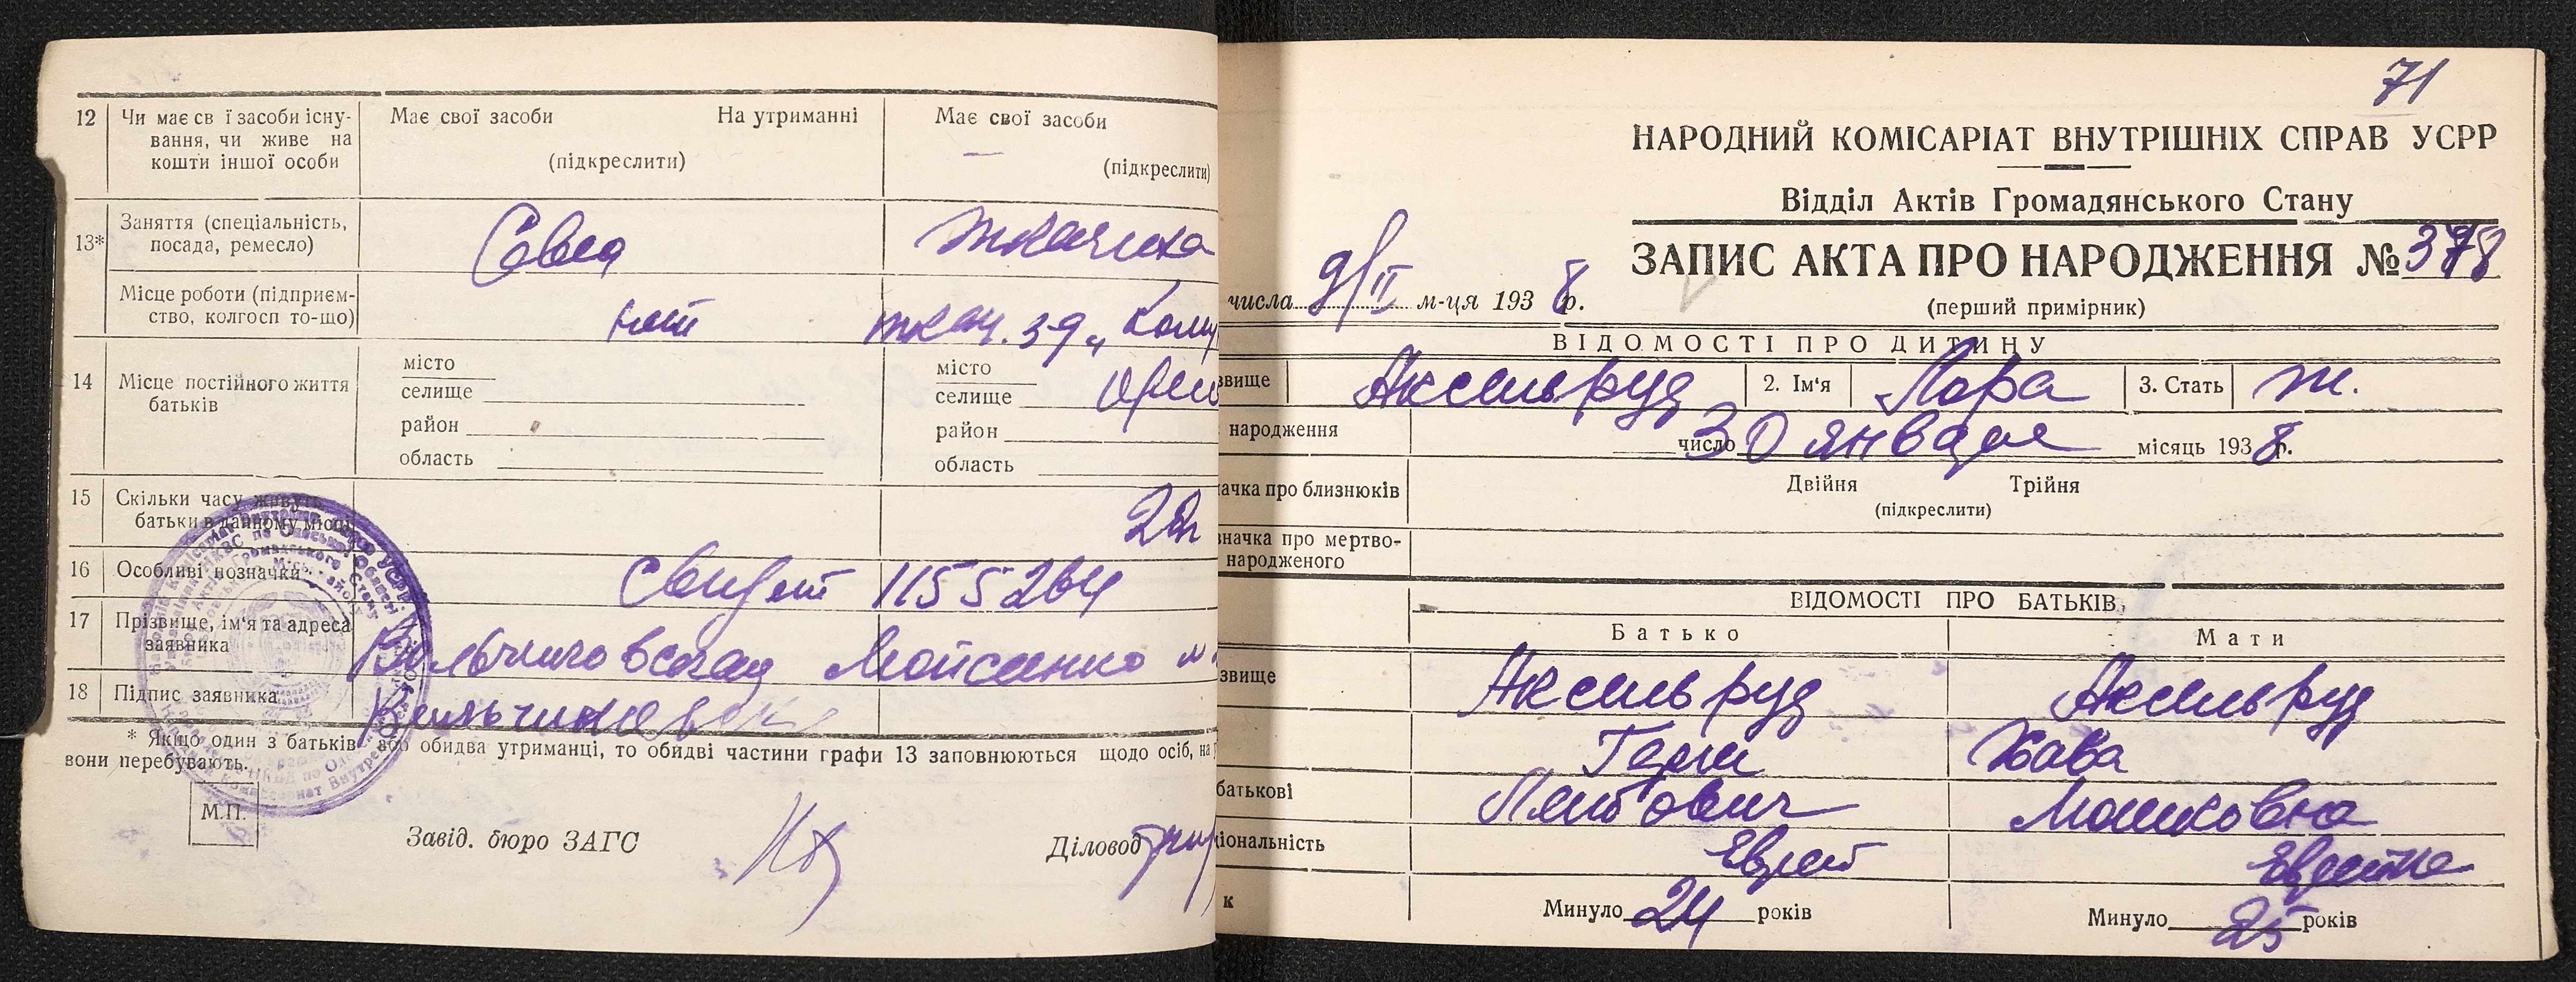 12 Чи має св ї засоби існу-
вання, чи живе на
кошти іншої особи
Має свої засоби На утриманні
(підкреслити)
Має свої засоби
(підкреслити)
13* Заняття (спеціальність,
посада, ремесло)
ткачиха
Місце роботи (підприєм-
ство, колгосп то-що)
нет
ткач. 39 „
14 Місце постійного життя
батьків
місто
селище
район
область
місто
селище
район
область
15 Скільки часу живуть
батьки в данному місці
16 Особливі позначки
1155264
17 Прізвище, ім'я та адреса
заявника
18 Підпис заявника
* Якщо один з батьків або обидва утриманці, то обидві частини графи 13 заповнюються щодо осіб, на
вони перебувають.
М.П.
Завід. бюро ЗАГС
Діловод
71
НАРОДНИЙ КОМІСАРІАТ ВНУТРІШНІХ СПРАВ УСРР
Відділ Актів Громадянського Стану
ЗАПИС АКТА ПРО НАРОДЖЕННЯ № 378
числа 9/II м-ця 1938 р.
(перший примірник)
ВІДОМОСТІ ПРО ДИТИНУ
звище Аксельруд 2. Ім'я Лора 3. Стать ж.
народження число 30 января місяць 1938 р.
ачка про близнюків Двійня Трійня
(підкреслити)
значка про мертво-
народженого
ВІДОМОСТІ ПРО БАТЬКІВ
Батько Мати
звище Аксельруд Аксельруд
Герш Хава
батькові Лейбович Мошковна
ціональність Еврей Еврейка
к Минуло 24 років Минуло 25 років